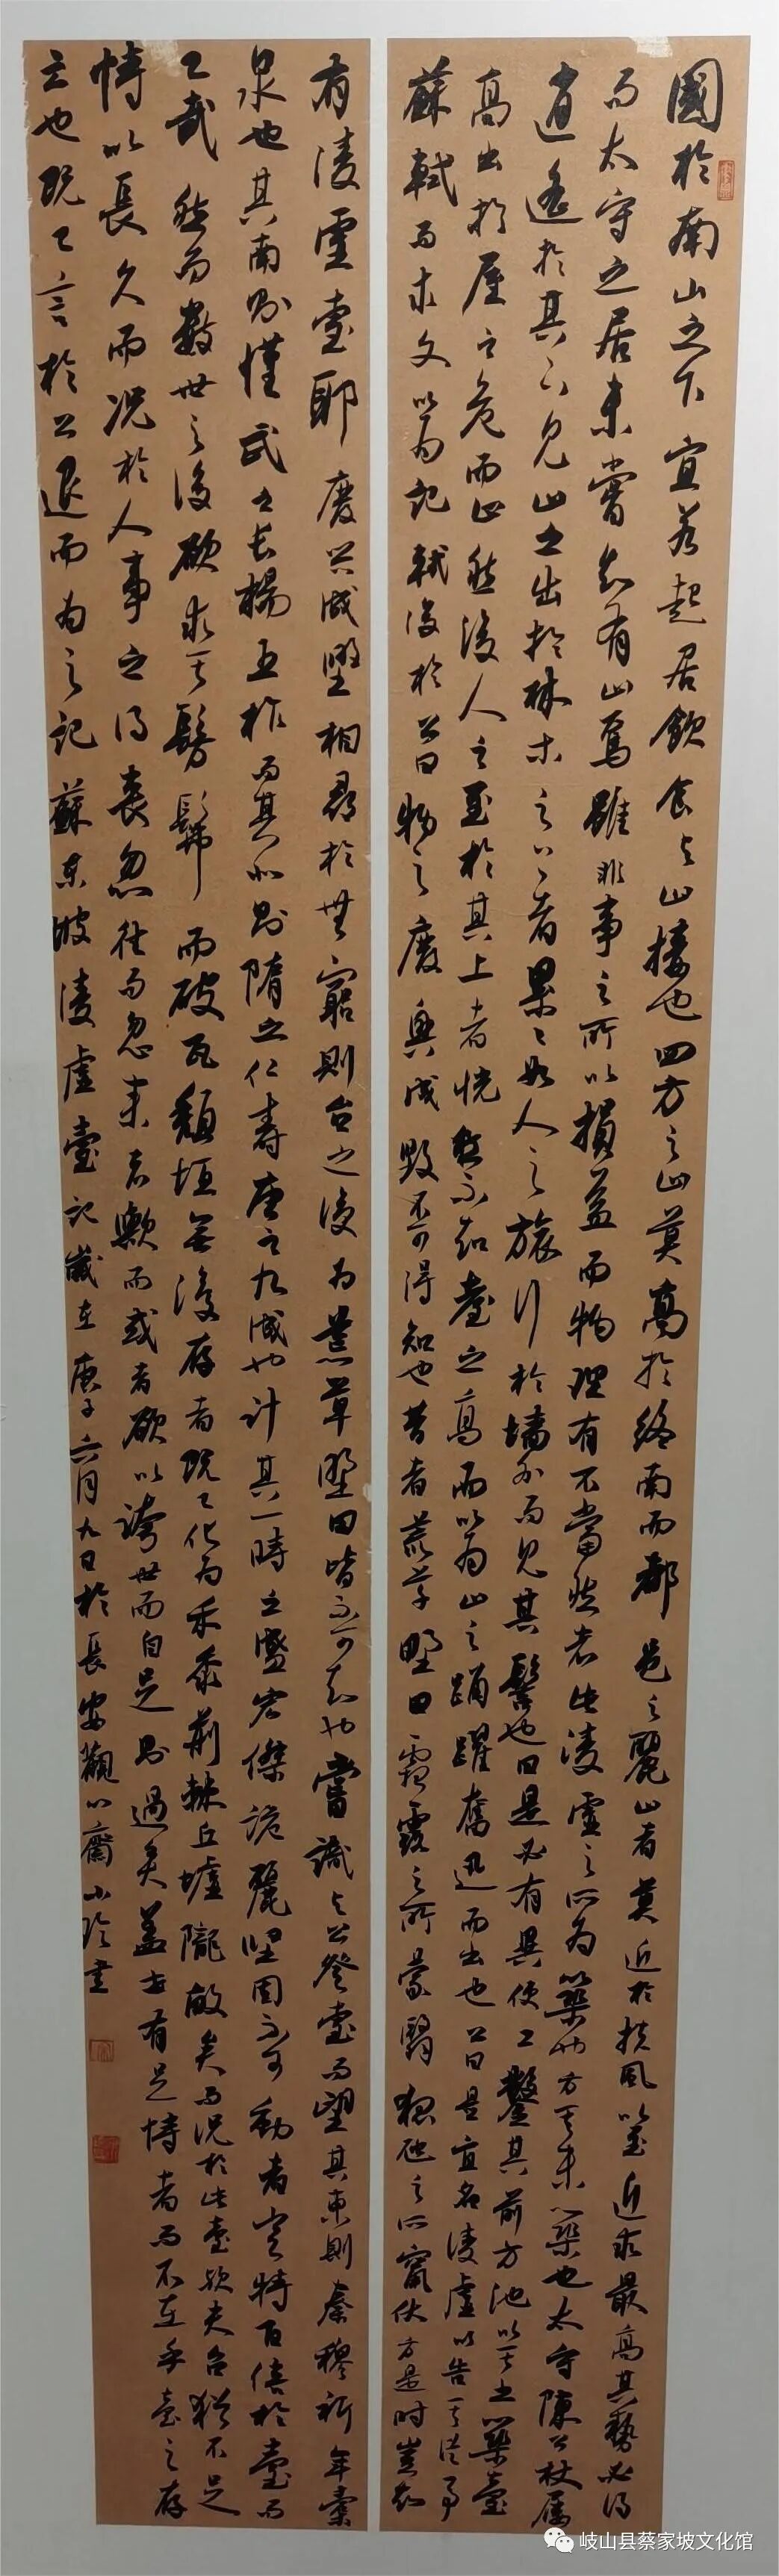 國於南山之下宜若起居飲食与山接也四方之山莫高於終南而都邑之麗山者莫近於扶風以至近求最高其勢必得
而太守之居未嘗知有山焉雖非事之所以損益而物理有不當然者此淩虛之所為築也方其未築也太守陳公杖屨
逍遙於其下見山之出於林木之上者累々如人之旅行於墻外而見其髻也曰是必有異使工鑿其前方池以其土築臺
高出於屋之危而止然後人之至於其上者恍然不知臺之高而以為山之踊躍奮迅而出也公曰是宜名淩虛以告其從事
蘇軾而求文以為記軾復於公曰物之廢興成毀不可得知也昔者荒草野田霜露之所蒙翳狐虺之所竄伏方是時豈知
有淩虛臺耶廢興成毀相尋於無窮則台之復為荒草野田皆不可知也嘗試与公登臺而望其東則秦穆祈年橐
泉也其南則漢武之長楊五柞而其北則隋之仁壽唐之九成也計其一時之盛宏傑詭麗堅固不可動者豈特百倍於臺而
已哉然而數世之後欲求其髣髴而破瓦頹垣無復存者既已化為禾黍荊棘丘墟隴畝矣而況於此臺歟夫台猶不足
恃以長久而況於人事之得喪忽往而忽來者歟而或者欲以誇世而自足則過矣蓋世有足恃者而不在乎臺之存
亡也既已言於公退而為之記蘇東坡淩虛臺記歲在庚子六月九日於長安觀心齋小書
岐山县蔡家坡文化馆